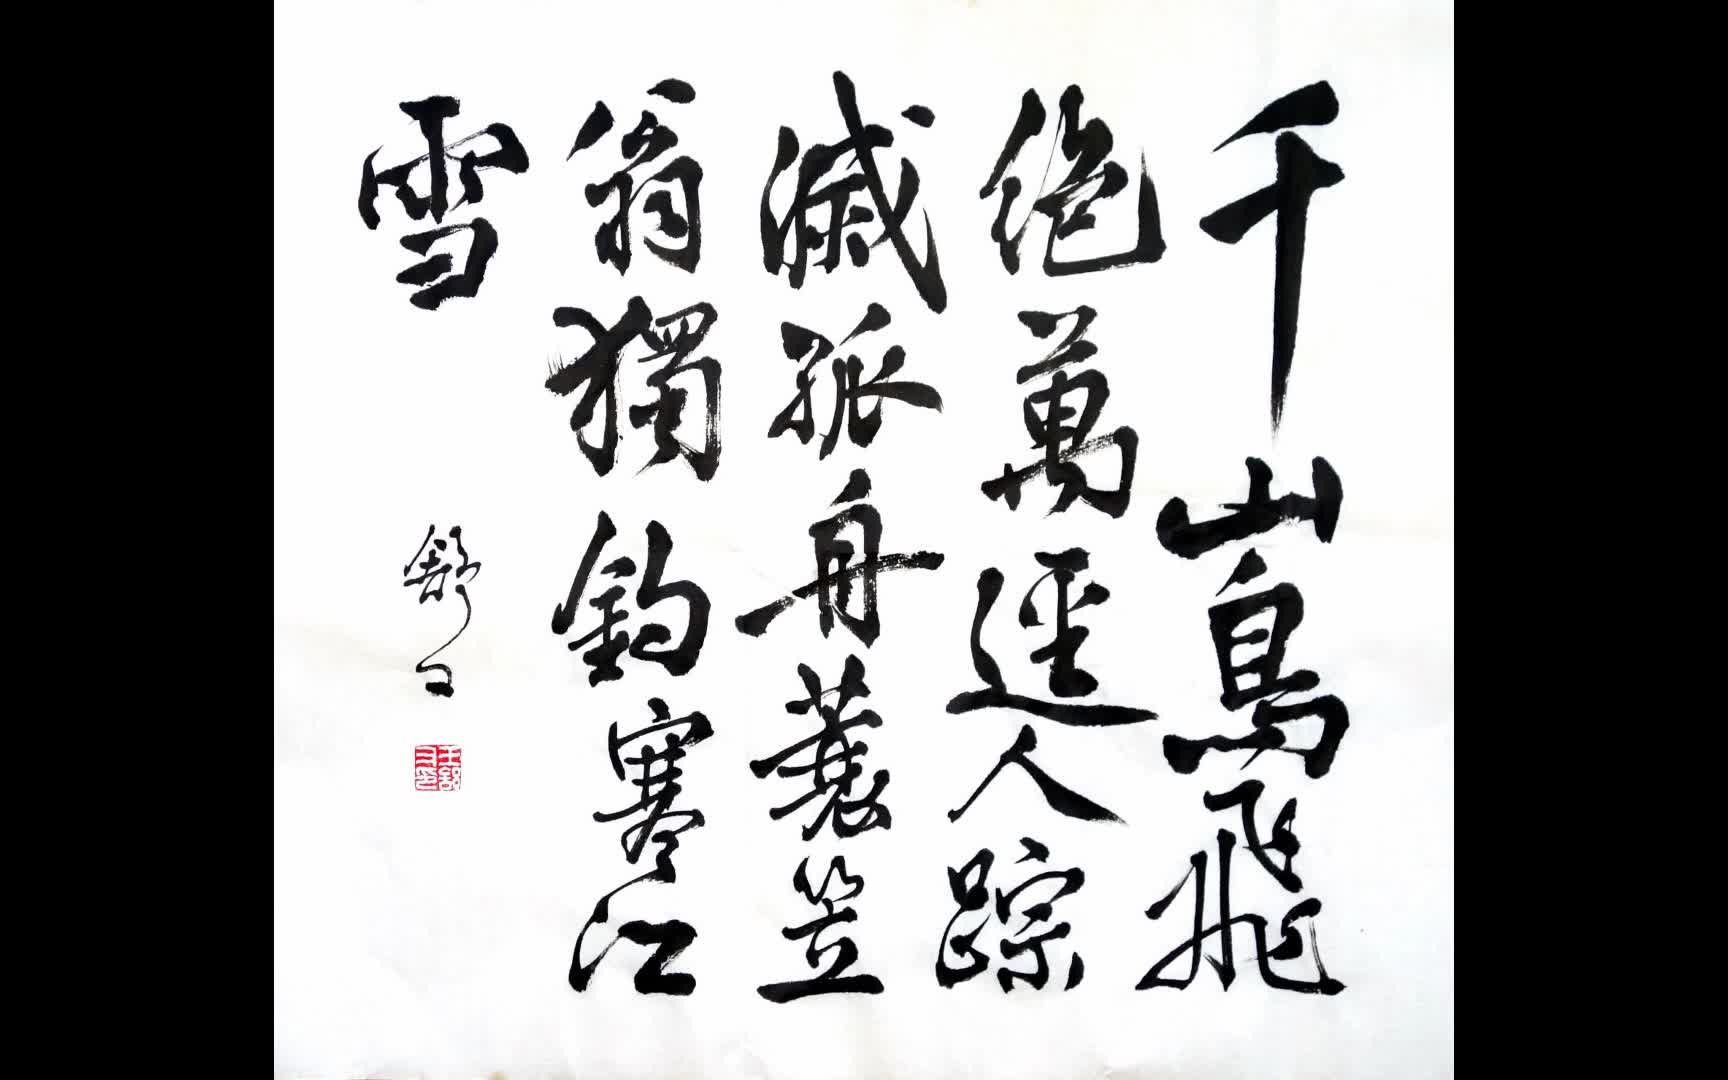 千山鳥飛
絶萬逕人踪
滅孤舟蓑笠
翁獨釣寒江
雪
舒